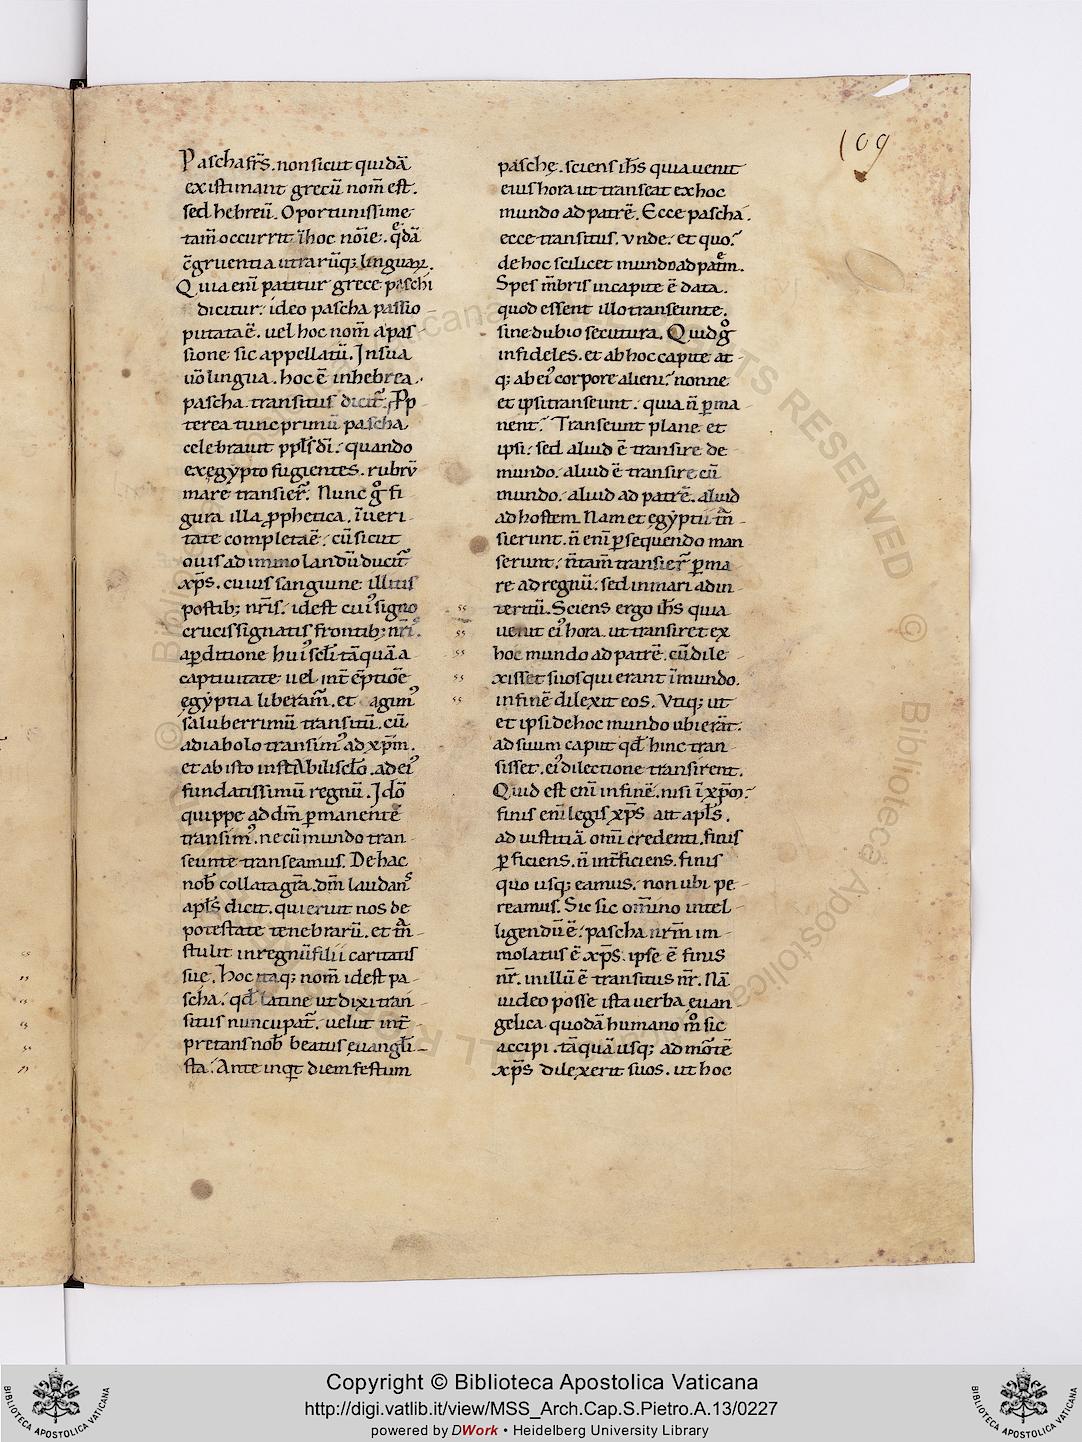 109
Pascha fr̄s. non sicut quidā
existimant grecū nom̄ est.
sed hebreū. Oportunissime
tam̄ occurrit ī hoc nōīe. q̄dā
c̄gruentia utrarūq; linguaꝝ.
Quia enī patitur grece paschi
dicitur: ideo pascha passio
putata ē. uel hoc nom̄ a pas-
sione sic appellatū. In sua
uō lingua. hoc ē in hebrea.
pascha transitus dicit᷑. Pp
terea tunc primū pascha
celebrauit ppl̄s dī. quando
ex egẏpto fugientes. rubrū
mare transier̄. Nunc gͦ fi-
gura illa ꝓphetica. ī ueri-
tate completa ē. cū sicut
ouis ad immolandū ducit᷑
xp̄s. cuius sanguine illitis
postib; nr̄is. id est cuiꝰ signo
crucis signatis frontib; nr̄iſ.
a ꝑditione huiꝰ scl̄i tā quā a
captiuitate uel int̄ēptiōe
egẏptia liberam̄. et agimꝰ
saluberrimū transitū. cū
a diabolo transimꝰ ad xp̄m.
et ab isto instabili scl̄o. ad eiꝰ
fundatissimū regnū. Idō
quippe ad dm̄ ꝑmanentē
transimꝰ. ne cū mundo tran-
seunte transeamus. De hac
nob̄ collata gr̄a. dm̄ laudanſ
apl̄s dicit. qui eruit nos de
potestate tenebrarū. et tr̄n-
stulit in regnū filii caritatis
sue. Hoc itaq; nom̄ id est pa-
scha. qd̄ latine ut dixi tran-
situs nuncupat᷑. uelut int̄-
pretans nob̄ beatus euangl̄i-
sta. Ante inqt̄ diem festum
paschę. sciens ih̄s quia uenit
eius hora ut transeat ex hoc
mundo ad patrē. Ecce pascha.
ecce transitus. Vnde. et quo?
de hoc scilicet mundo ad patrē.
Spes m̄bris in capite ē data.
quod essent illo transeunte.
sine dubio secutura. Quid gͦ
infideles. et ab hoc capite at-
q; ab eiꝰ corpore alieni? nonne
et ipsi transeunt. quia n̄ ꝑma-
nent? Transeunt plane et
ipsi. sed aliud ē transire de
mundo. aliud ē transire cū
mundo. aliud ad patrē. aliud
ad hostem. Nam et egẏptii tr̄n-
sierunt. n̄ enī ꝑsequendo man
serunt. n̄ tam̄ transier̄ ꝑ ma
re ad regnū. sed in mari ad in-
teritū. Sciens ergo ih̄s quia
uenit eiꝰ hora. ut transiret ex
hoc mundo ad patrē. cū dile-
xisset suos qui erant ī mundo.
in finē dilexit eos. Vtiq; ut
et ipsi de hoc mundo ubi erāt.
ad suum caput qd̄ hinc tran-
sisset. eiꝰ dilectione transirent.
Quid est enī in finē. nisi ī xp̄m?
finis enī legis xp̄s ait apl̄s.
ad iustitiā omī credenti. finis
ꝑficiens. n̄ int̄ficiens. finis
quo usq; eamus. non ubi pe-
reamus. Sic sic om̄ino intel-
ligendū ē. pascha nr̄m im-
molatus ē xp̄s. ipse ē finis
nr̄. in illū ē transitus nr̄. Nā
uideo posse ista uerba euan
gelica quodā humano mͦ sic
accipi. tā quā usq; ad mōtē
xp̄s dilexerit suos. ut hoc
Copyright © Biblioteca Apostolica Vaticana
http://digi.vatlib.it/view/MSS_Arch.Cap.S.Pietro.A.13/0227
powered by DWork • Heidelberg University Library